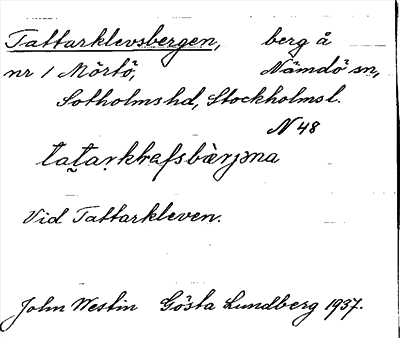 Tattarklevsbergen, berg å
nr 1 Mörtö, Nämdö sn,
Sotholms hd, Stockholms l.
N 48
Vid Tattarkleven.
John Westin Gösta Lundberg 1937.